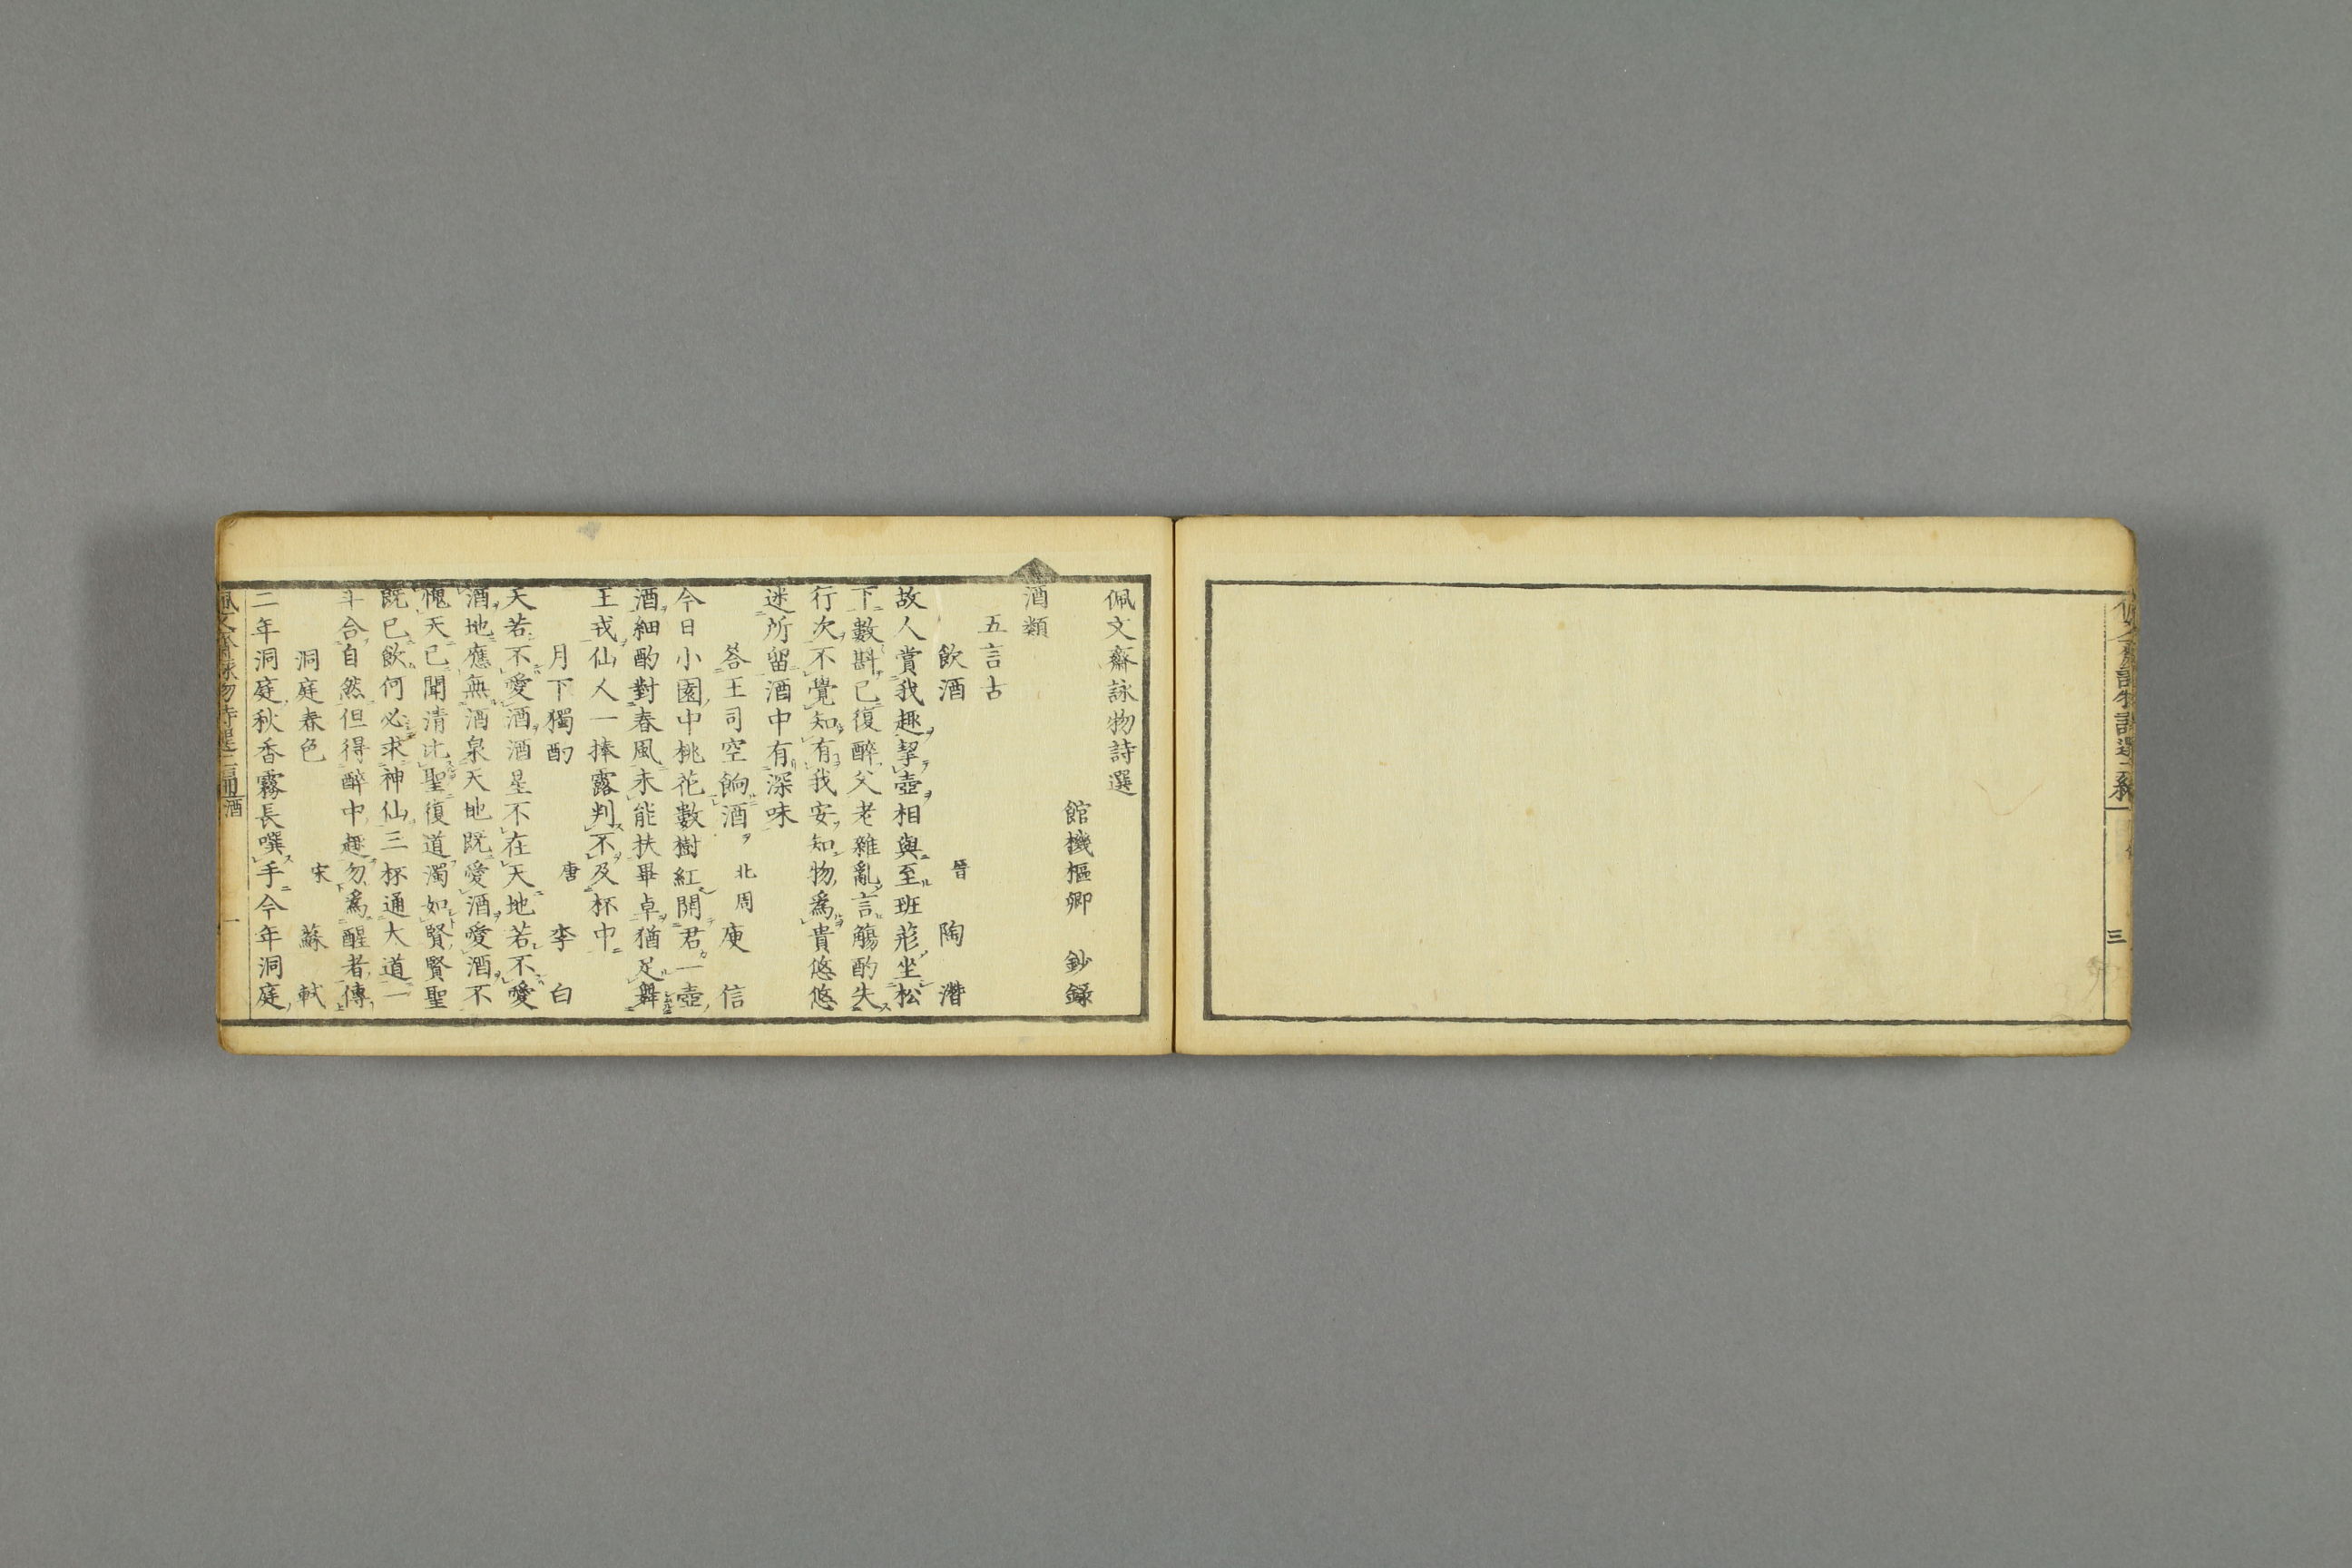 三
佩文齋詠物詩選
館機樞卿 鈔錄
酒類
五言古
飲酒 晉 陶潛
故人賞我趣挈壺相與至班荊坐松
下數斟已復醉父老雜亂言觴酌失
行次不覺知有我安知物爲貴悠悠
迷所留酒中有深味
答王司空餉酒 北周 庾信
今日小園中桃花數樹紅開君一壺
酒細酌對春風未能扶畢卓猶足舞
王戎仙人一捧露判不及杯中
月下獨酌 唐 李白
天若不愛酒酒星不在天地若不愛
酒地應無酒泉天地既愛酒愛酒不
愧天已聞清比聖復道濁如賢賢聖
既已飲何必求神仙三杯通大道一
斗合自然但得醉中趣勿爲醒者傳
洞庭春色 宋 蘇軾
二年洞庭秋香霧長噀手今年洞庭
佩文齋詠物詩選二編 酒 一